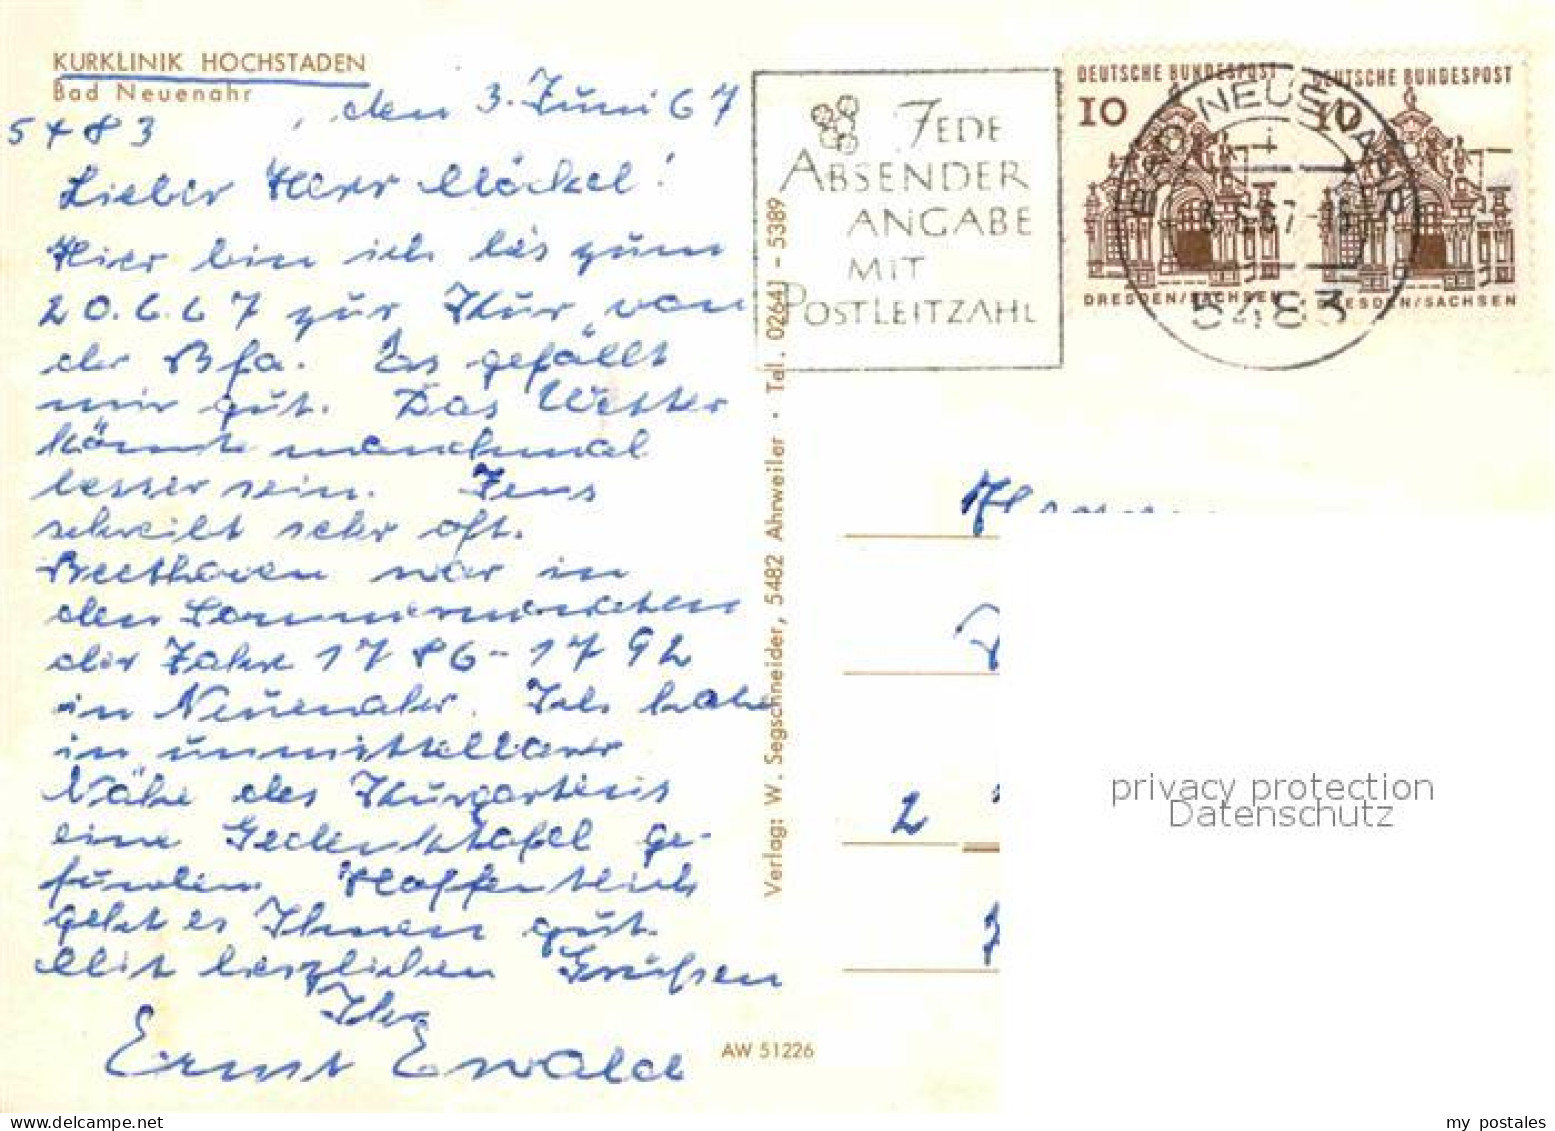 KURKLINIK HOCHSTADEN
Bad Neuenahr
5483
, den 3. Juni 67
Lieber Herr Möckel!
Hier bin ich bis zum
20.6.67 zur Kur von
der Bfa. Es gefällt
mir gut. Das Wetter
könnte manchmal
besser sein. Jens
schreibt sehr oft.
Beethoven war in
den Sommermonaten
der Jahre 1786-1792
in Neuenahr. Ich habe
in unmittelbarer
Nähe des Kurgartens
eine Gedenktafel ge-
funden. Hoffentlich
geht es Ihnen gut.
Mit herzlichen Grüßen
Ihr
Ernst Ewald
AW 51226
Verlag: W. Segschneider, 5482 Ahrweiler · Tel. 02641 - 5389
JEDE
ABSENDER
ANGABE
MIT
POSTLEITZAHL
DEUTSCHE BUNDESPOST
10
DRESDEN/SACHSEN
DEUTSCHE BUNDESPOST
10
DRESDEN/SACHSEN
BAD NEUENAHR
i
5483
2
privacy protection
Datenschutz
my postales